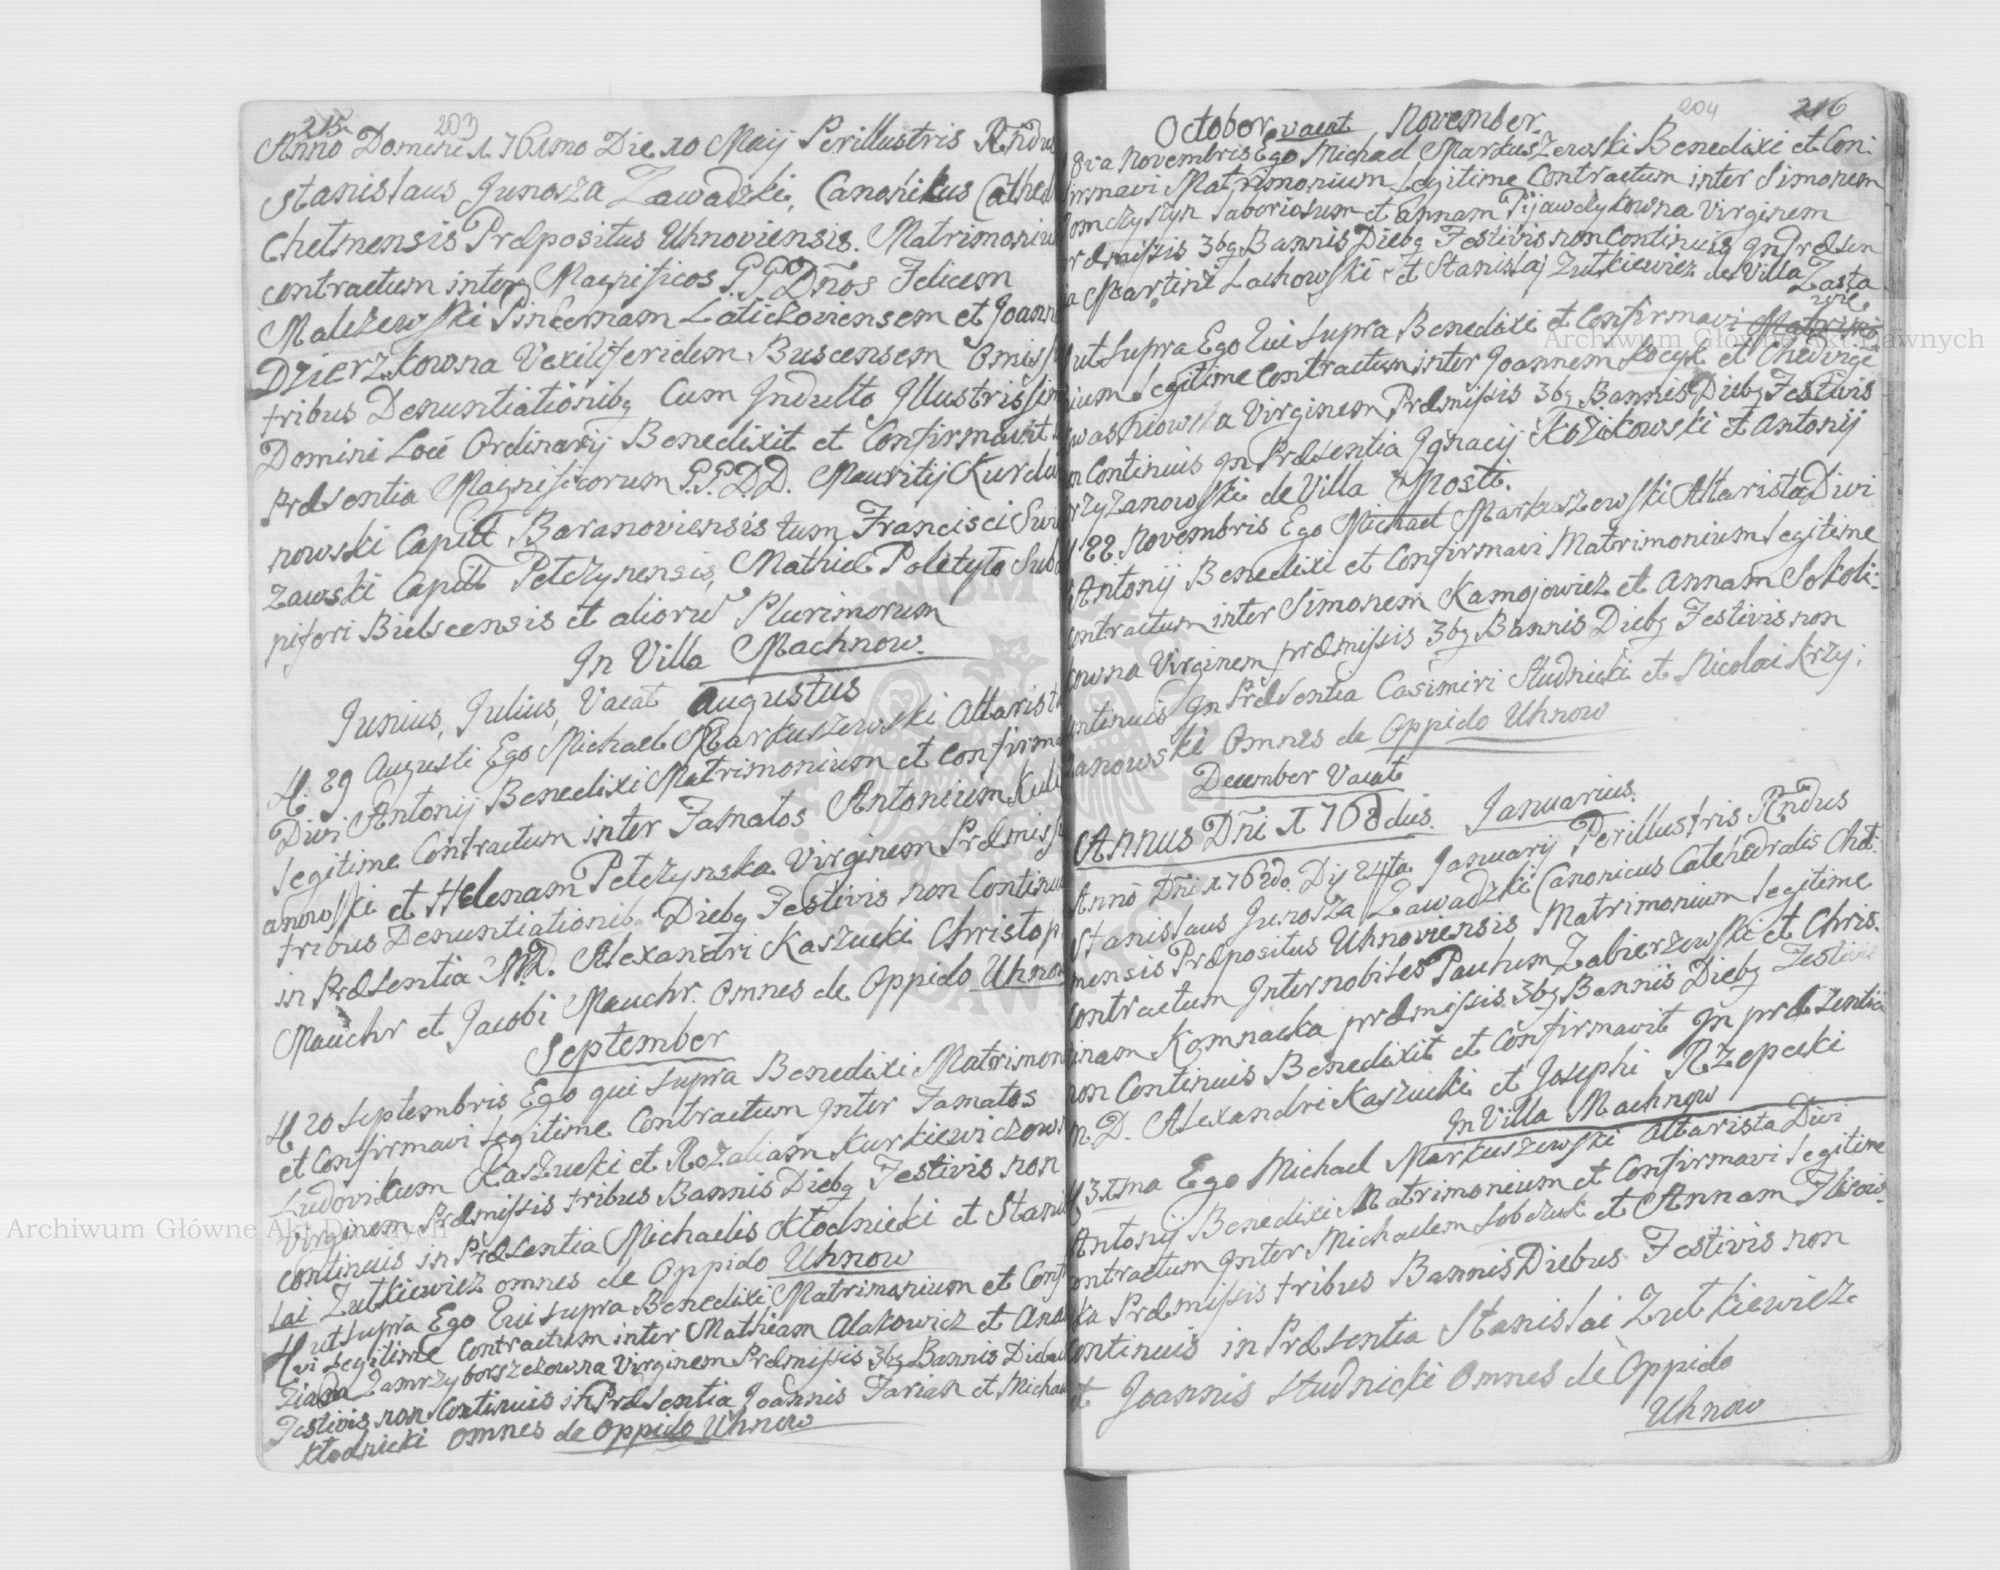 215. 203
Anno Domini 1761mo Die 10 Maij Perillustris Rndus
Stanislaus Junosza Zawadzki, Canonikus Cathed
Chelmensis Præpositus Uhnoviensis. Matrimoniu
contractum inter Magnificos P.P. Dños Felicem
Malczewski Pincernam Laticzoviensem et Joann
Dzierzkowna Vexiliferidem Buscensem Omissis
tribus Denuntiationibq Cum Indulto Illustrissim
Domini Loci Ordinarij Benedixit et Confirmavit
Præsentia Magnificorum P.P.D.D. Mauritij Kurdw
nowski Capitt Baranoviensis tum Francisci Sur
zawski Capitt Petczynensis, Mathiæ Poletyto Sub
piferi Bielscensis et alioru Plurimorum
In Villa Machnow.
Junius, Julius, Vacat Augustus
29 Augusti Ego Michael Markuszewski Altarist
Divi Antonij Benedixi Matrimonium et confirma
legitime Contractum inter Famatos Antonium Kul
anowski et Helenam Petczynska Virginem Præmiss
tribus Denuntiationibq Diebq Festivis non Continu
in Præsentia M.D. Alexandri Kaszucki Christop
Mauchr et Jacobi Mauchr. Omnes de Oppido Uhnow
September
20 Septembris Ego qui supra Benedixi Matrimon
et Confirmavi legitime Contractum Inter Famatos
Ludovikum Kaszucki et Rozaliam Kurkiewiczow
Virginem Præmissis tribus Bannis Diebq Festivis non
continuis in Præsentia Michaelis Kłodnicki et Stanis
lai Zutkiewicz omnes de Oppido Uhnow
ut supra Ego Qui supra Benedixi Matrimonium et Conf
vi legitime Contractum inter Mathiam Alakowicz et Ana
Zamrzyborszczowna Virginem Præmissis 3bq Bannis Diebu
Festivis non Continuis in Præsentia Joannis Farian et Michae
Kłodnicki omnes de Oppido Uhnow
204 216
October vacat November.
8va Novembris Ego Michael Markuszewski Benedixi et Con:
firmavi Matrimonium Legitime Contractum inter Simonem
omczyszyn Laboriosum et Annam Pijawczykowna Virginem
ræmissis 3bq Bannis Diebq Festivis non Continuis In Præsen
a Martini Lachowski et Stanislaj Zutkiewicz de Villa Zasta
wie
ut supra Ego Qui supra Benedixi et Confirmavi Matrimo
ium legitime Contractum inter Joannem Kocyk et Chedinge
Virginem Præmissis 3bq Bannis Diebq Festivis
n Continuis In Præsentia Ignacij Kozikowski et Antonij
rzyzanowski de Villa Mosti.
22 Novembris Ego Michael Markuszewski Altarista Divi
Antonij Benedixi et Confirmavi Matrimonium legitime
ontractum inter Simonem Kamojowicz et Annam Sokoli:
owna Virginem præmissis 3bq Bannis Diebq Festivis non
ontinuis In Præsentia Casimiri Studnicki et Nicolai Krzy:
zanowski Omnes de Oppido Uhnow
December Vacat
Annus Dñi 1762dus. Januarius.
Anno Dñi 1762do. Dij 24ta Januarij Perillustris Rndus
Stanislaus Junosza Zawadzki Canonicus Catehedralis Chel:
mensis Præpositus Uhnoviensis Matrimonium legitime
Contractum Inter nobiles Paulum Zabierzowski et Chris:
inam Komnacka præmissis 3bq Bannis Diebq Festivis
non Continuis Benedixit et Confirmavit In præsentia
M.D. Alexandri Kaszucki et Josephi Rzepecki
In Villa Machnow
31ma Ego Michael Markuszewski Altarista Divi
Antonij Benedixi Matrimonium et Confirmavi legitime
ontractum Inter Michaelem Sobczuk et Annam Flisow:
ka Præmissis tribus Bannis Diebus Festivis non
Continuis in Præsentia Stanislai Zutkiewicz
et Joannis Studnicki Omnes de Oppido
Uhnow
Archiwum Główne Akt Dawnych
Archiwum Główne Akt Dawnych